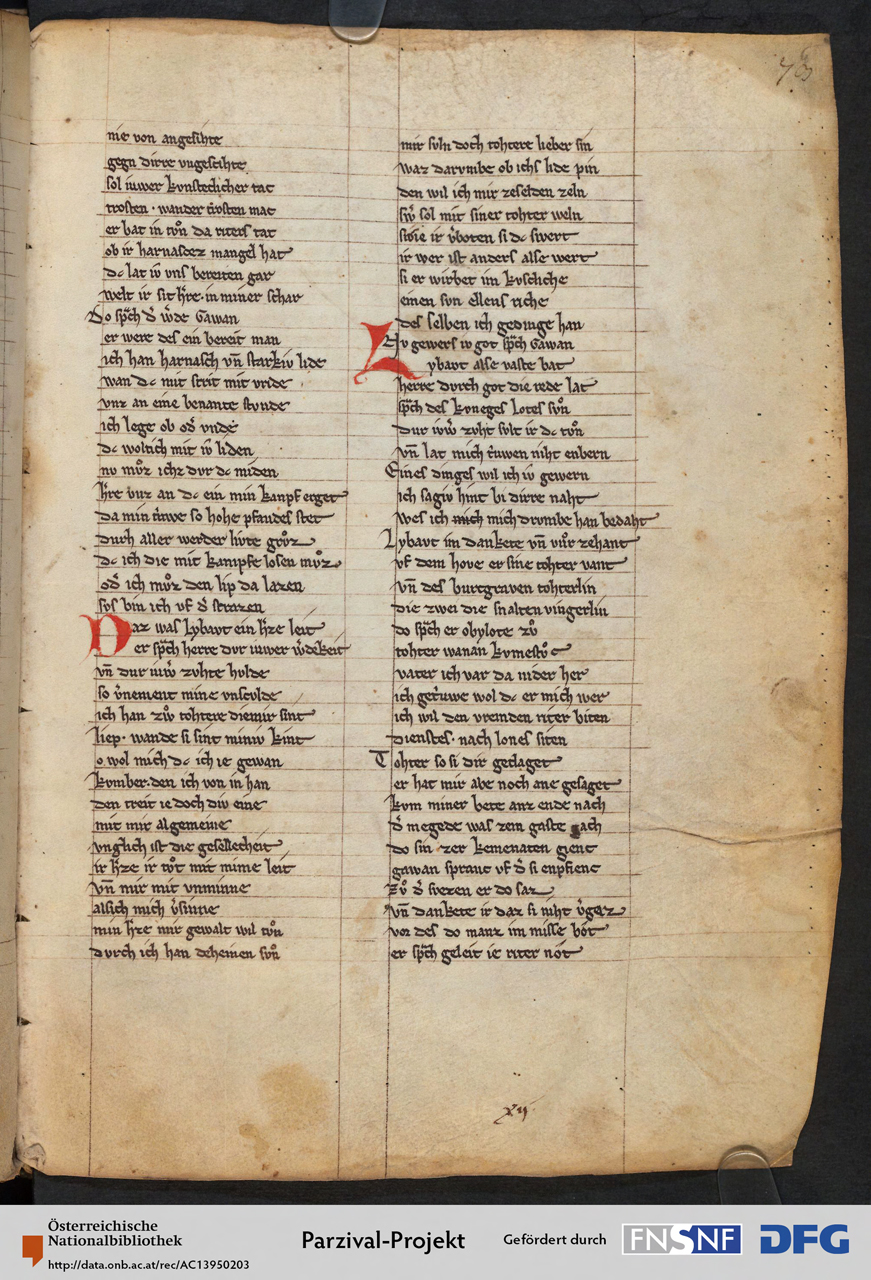 nie von angesihte
gegn dirre ungescihte
sol iuwer kvnsteclicher rat
trosten · wander trosten mac
er bat in tvͦn da riters tat
ob ir harnascez mangel hat
dc lat iv vns bereiten gar
welt ir sit hre in miner schar
Do spͣch dˀ wˀde Gawan
er were des ein bereit man
ich han harnasch vn̄ starkiv lide
wan dc mit strit mit vride
vnz an eine benante stvnde
ich lege ob odˀ vnde
dc woltich mit iv liden
nv mvͦz ichz dvr dc miden
hˀre vnz an dc ein min kanpf erget
da min trͥwe so hohe pfandes stet
durh aller werder livte grvͦz
dc ich die mit kampfe losen mvͦz
odˀ ich mvͦz den lip da lazen
svs bin ich vf dˀ strazen
Daz was Lybavt ein hˀze leit
er spͣch herre dvr iuwer wˀdekeit
vn̄ dur iuwˀ zvhte hvlde
so vˀnement mine vnsculde
ich han zwͦ tohtere die mir sint
liep · wande si sint miniv kint
o wol mich dc ich ie gewan
kvmber · den ich von in han
den treit ie doch div eine
mit mir algemeine
vnglich ist die geselleheit
ir hˀze ir tvͦt mit mime leit
vn̄ mir mit vnminne
alsich mich vˀsinne
min hˀze mir gewalt wil tvͦn
dvrch ich han deheinen svͦn
mir svln doch tohtere lieber sin
waz darvmbe ob ichs lide pin
den wil ich mir ze selden zeln
swˀ sol mit siner tohter weln
swie ir vˀboten si dc swert
ir wer ist anders alse wert
si erwirbet im kvscliche
einen svn ellens riche
des selben ich gedinge han
Nv gewers iv got spͣch Gawan
Lybavt alse vaste bat
herre dvrch got die rede lat
spͣch des kvneges Lotes svͦn
Dur iwˀ zvht svlt ir dc tvͦn
vn̄ lat mich trͥuwen niht enbern
Eines dinges wil ich iv gewern
ich sagiv hint bi dirre naht
wes ich mich mich drvmbe han bedaht
Lybavt im dankete vn̄ vuͦr zehant
vf dem hove er sine tohter vant
vn̄ des burtgraven tohterlin
die zwei die snalten vingerlin
do spͣch er obylote zvͦ
tohter wanan kvmestvͦ
vater ich var da nider her
ich getrͥuwe wol dc er mich wer
ich wil den vremden riter biten
dienstes · nach lones siten
Tohter so si dir geclaget
er hat mir abe noch ane gesaget
kvm miner bete anz ende nach
dˀ megede was zem gaste gach
do sin zer kemenaten gienc
gawan spranc vf dˀ si enpfienc
Zvͦ dˀ svezen er do saz
vn̄ dankete ir daz si niht vˀgaz
vor des do manz im misse bot
er spͣch geleit ie riter not
xij
73
Österreichische
Nationalbibliothek
http://data.onb.ac.at/rec/AC13950203
Parzival-Projekt
Gefördert durch
FNSNF
DFG